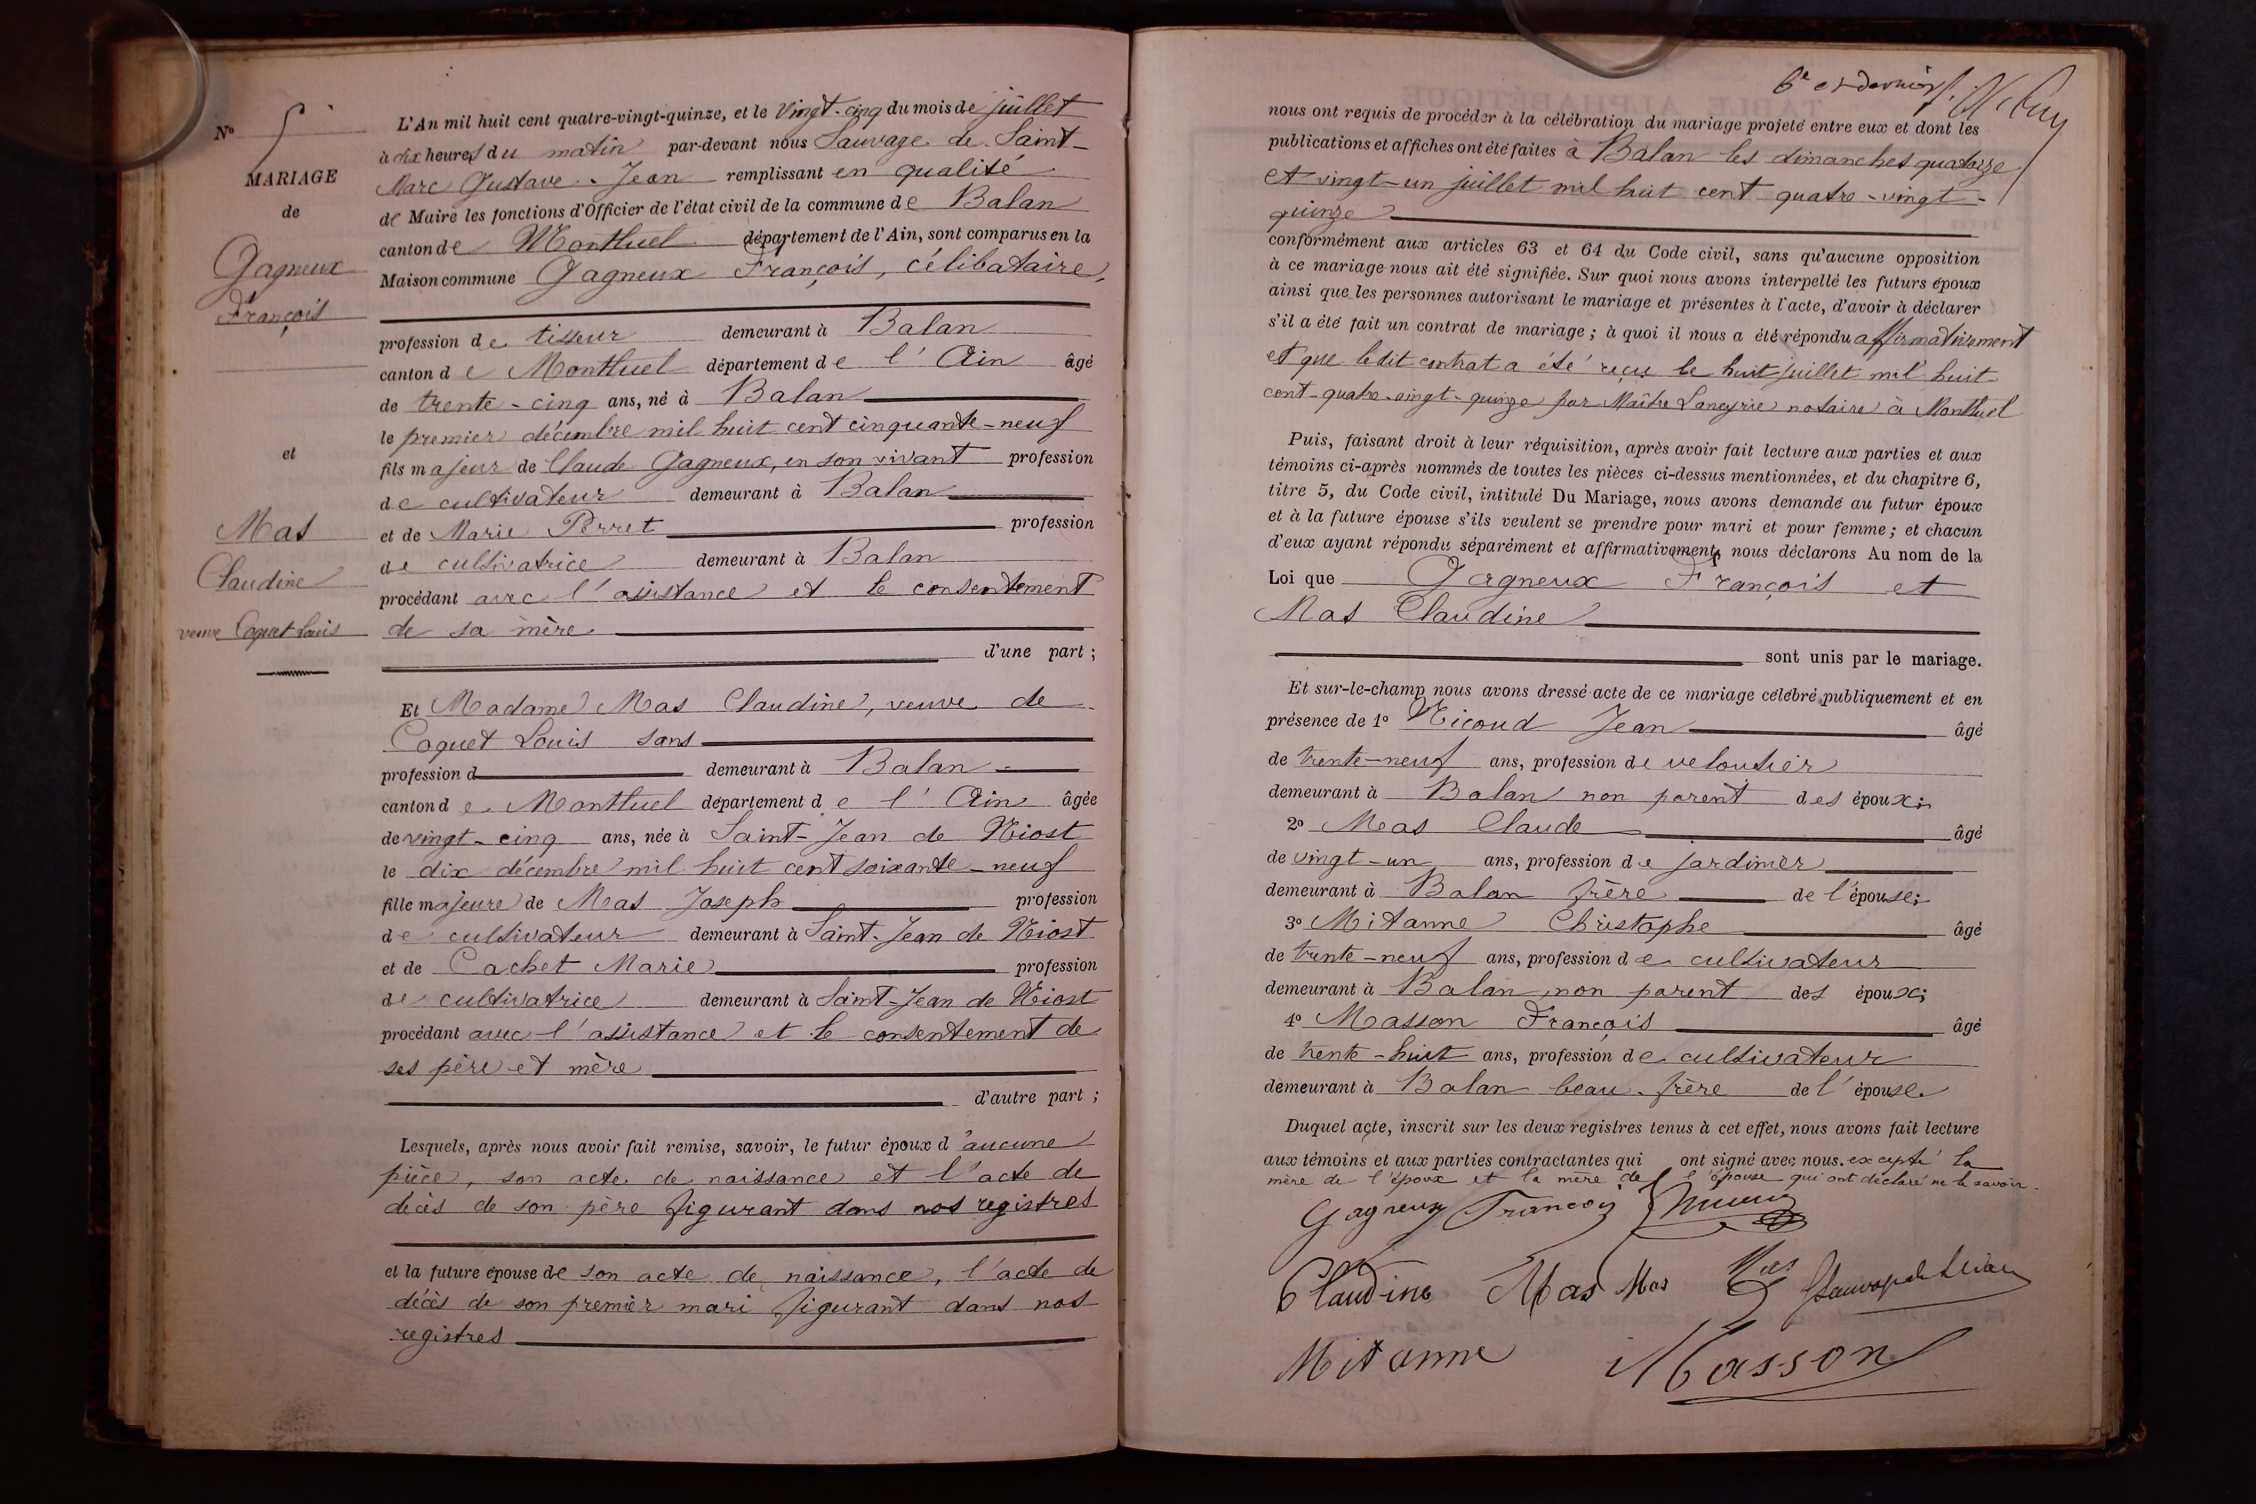 Nº 5
MARIAGE
de
Gagneux
François
et
Mas
Claudine
veuve Coquet Louis
L'An mil huit cent quatre-vingt-quinze, et le vingt-cinq du mois de juillet
à dix heures du matin par-devant nous Sauvage de Saint-
Marc Gustave-Jean remplissant en qualité
de Maire les fonctions d'Officier de l'état civil de la commune de Balan
canton de Montluel département de l'Ain, sont comparus en la
Maison commune Gagneux François, célibataire,
profession de tisseur demeurant à Balan
canton de Montluel département de l'Ain âgé
de trente-cinq ans, né à Balan
le premier décembre mil huit cent cinquante-neuf
fils majeur de Claude Gagneux, en son vivant profession
de cultivateur demeurant à Balan
et de Marie Perret profession
de cultivatrice demeurant à Balan
procédant avec l'assistance et le consentement
de sa mère
d'une part ;
Et Madame Mas Claudine, veuve de
Coquet Louis sans
profession d demeurant à Balan
canton de Montluel département de l'Ain âgée
de vingt-cinq ans, née à Saint-Jean de Niost
le dix décembre mil huit cent soixante-neuf
fille majeure de Mas Joseph profession
de cultivateur demeurant à Saint-Jean de Niost
et de Cachet Marie profession
de cultivatrice demeurant à Saint-Jean de Niost
procédant avec l'assistance et le consentement de
ses père et mère
d'autre part ;
Lesquels, après nous avoir fait remise, savoir, le futur époux d'aucune
pièce, son acte de naissance et l'acte de
décès de son père figurant dans nos registres
et la future épouse de son acte de naissance, l'acte de
décès de son premier mari figurant dans nos
registres
6e et dernier
nous ont requis de procéder à la célébration du mariage projeté entre eux et dont les
publications et affiches ont été faites à Balan les dimanches quatorze
et vingt-un juillet mil huit cent quatre-vingt-
quinze
conformément aux articles 63 et 64 du Code civil, sans qu'aucune opposition
à ce mariage nous ait été signifiée. Sur quoi nous avons interpellé les futurs époux
ainsi que les personnes autorisant le mariage et présentes à l'acte, d'avoir à déclarer
s'il a été fait un contrat de mariage ; à quoi il nous a été répondu affirmativement
et que ledit contrat a été reçu le huit juillet mil huit
cent-quatre-vingt-quinze par Maître Laneyrie notaire à Montluel
Puis, faisant droit à leur réquisition, après avoir fait lecture aux parties et aux
témoins ci-après nommés de toutes les pièces ci-dessus mentionnées, et du chapitre 6,
titre 5, du Code civil, intitulé Du Mariage, nous avons demandé au futur époux
et à la future épouse s'ils veulent se prendre pour mari et pour femme ; et chacun
d'eux ayant répondu séparément et affirmativement, nous déclarons Au nom de la
Loi que Gagneux François et
Mas Claudine
sont unis par le mariage.
Et sur-le-champ nous avons dressé acte de ce mariage célébré publiquement et en
présence de 1º Nicoud Jean âgé
de trente-neuf ans, profession de veloutier
demeurant à Balan non parent des époux ;
2º Mas Claude âgé
de vingt-un ans, profession de jardinier
demeurant à Balan frère de l'épouse ;
3º Mitanne Christophe âgé
de trente-neuf ans, profession de cultivateur
demeurant à Balan, non parent des époux ;
4º Masson François âgé
de trente-huit ans, profession de cultivateur
demeurant à Balan beau-frère de l'épouse.
Duquel acte, inscrit sur les deux registres tenus à cet effet, nous avons fait lecture
aux témoins et aux parties contractantes qui ont signé avec nous. excepté la
mère de l'époux et la mère de l'épouse qui ont déclaré ne le savoir.
Gagneux François
Claudine Mas Mas Mas
Mitanne Masson